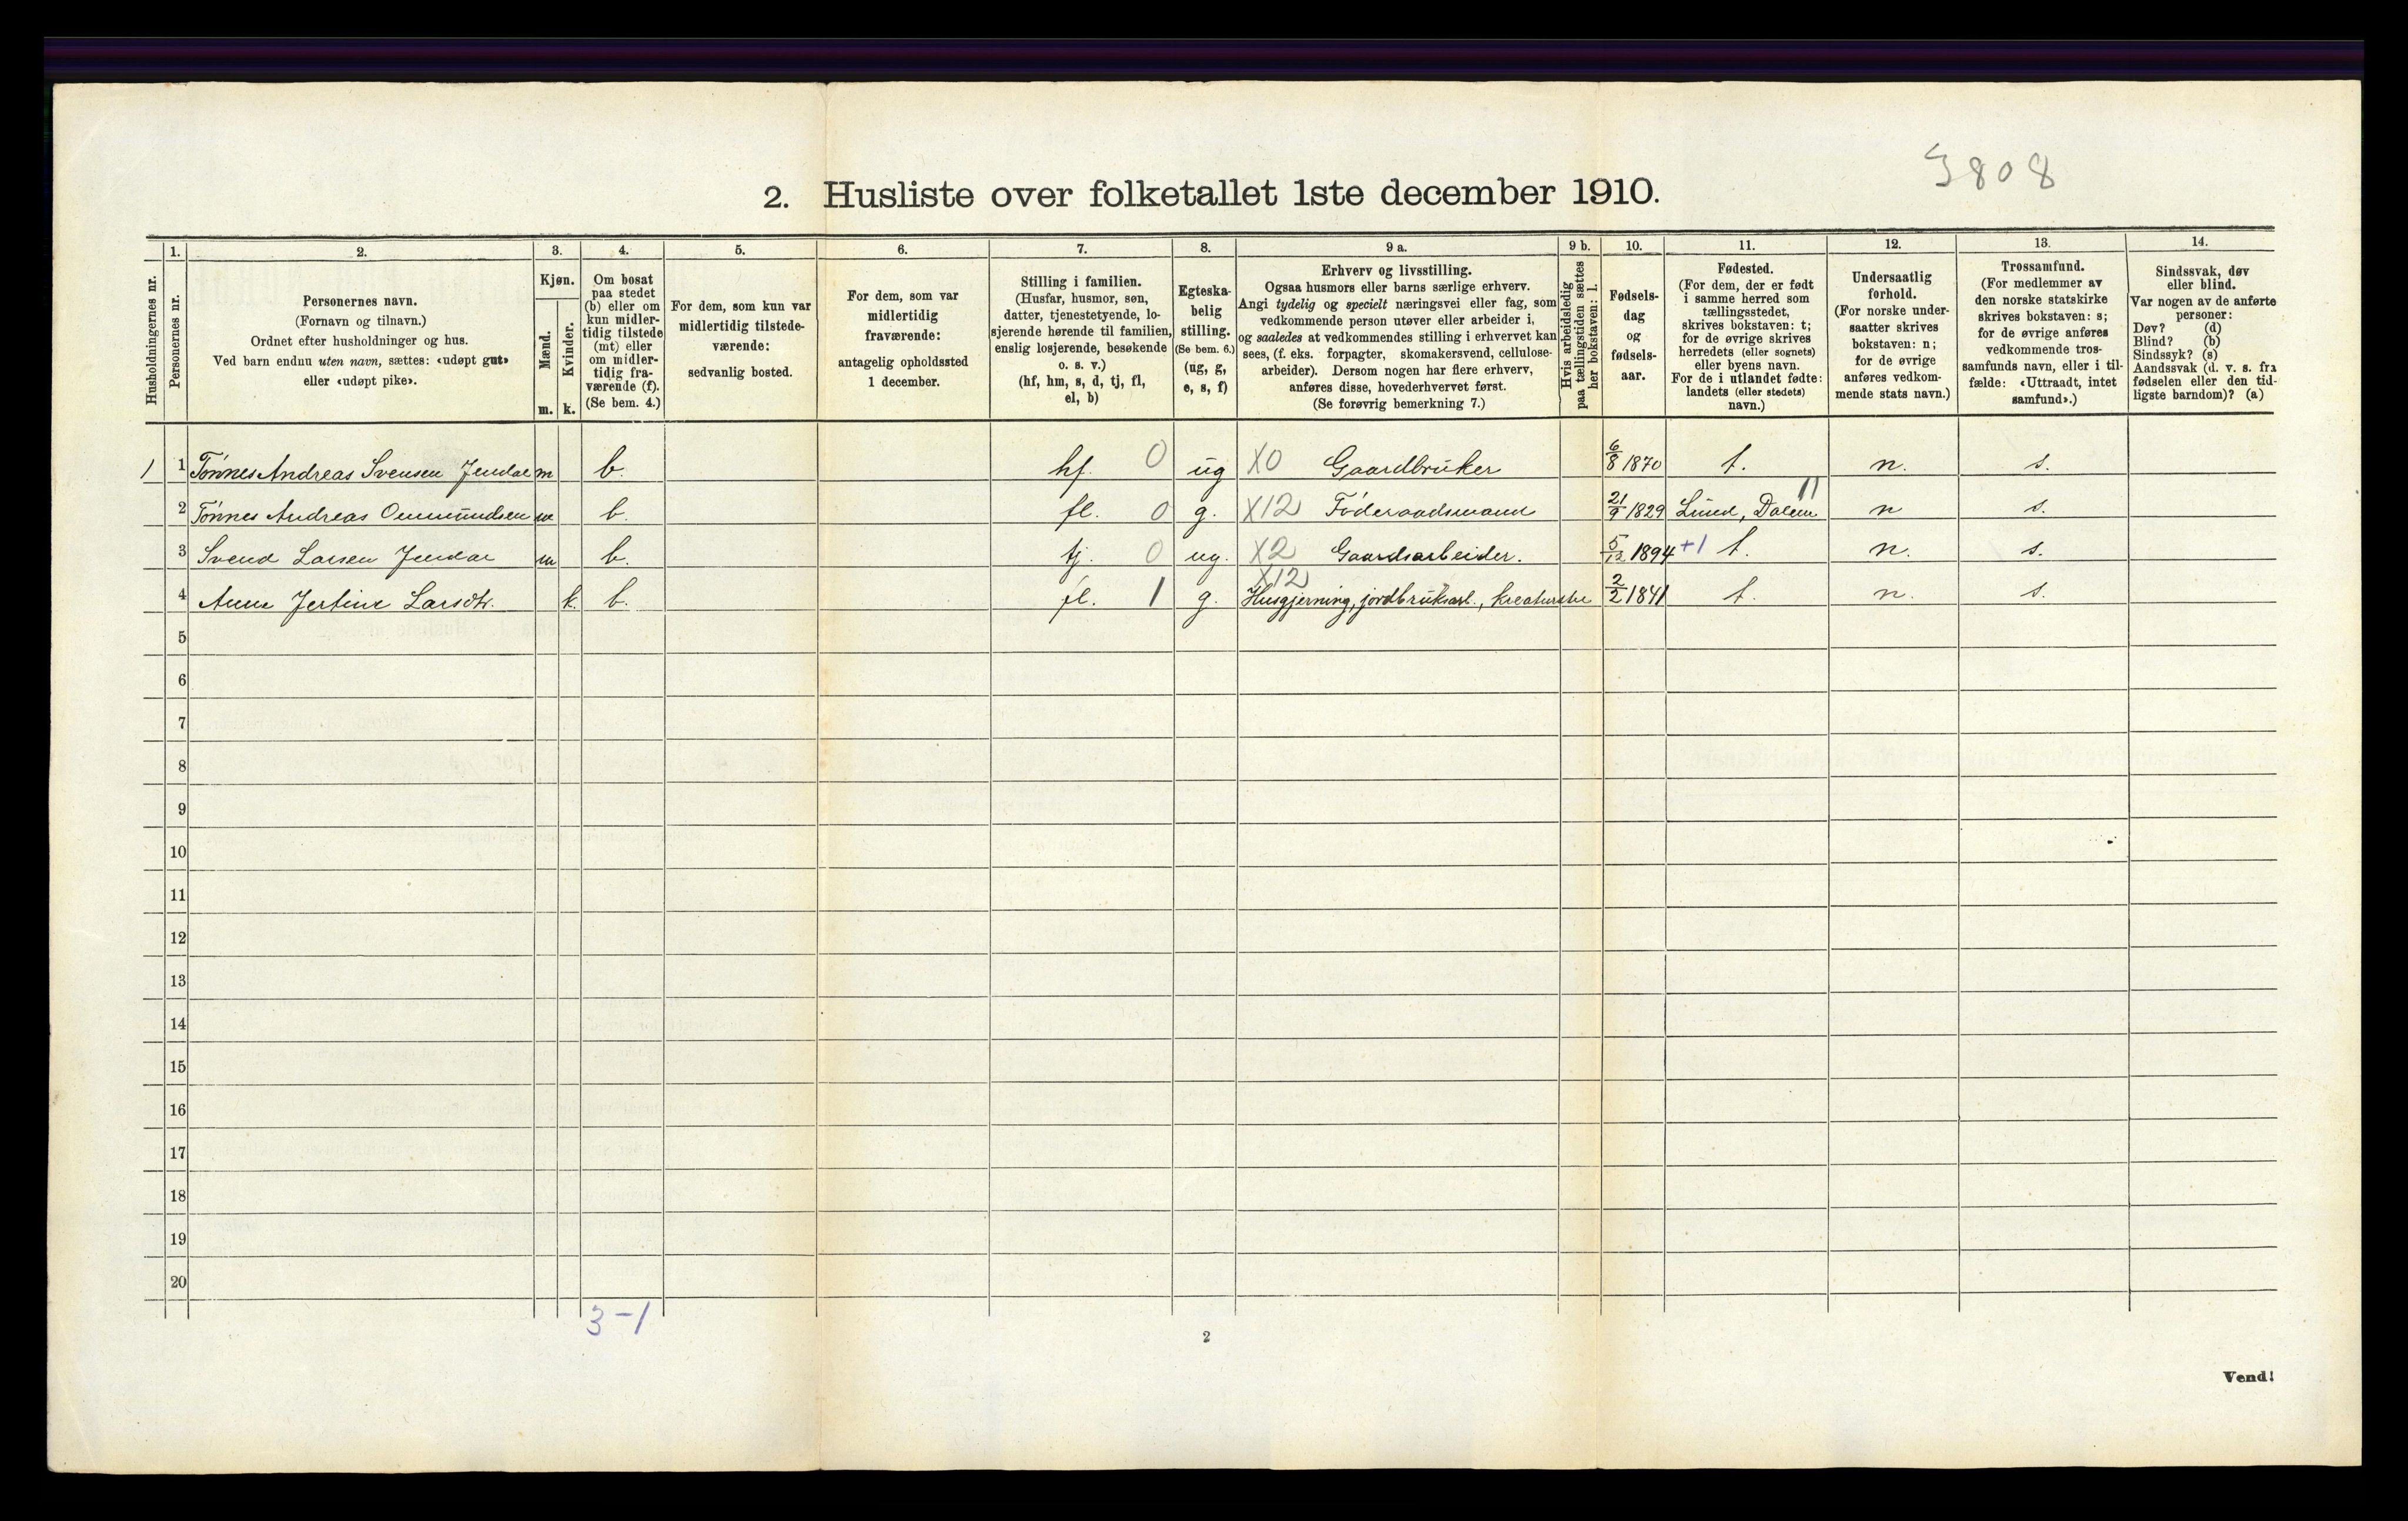 3808
2. Husliste over folketallet 1ste december 1910.
Husholdningernes nr.
1.
Personernes nr.
2.
Personernes navn.
(Fornavn og tilnavn.)
Ordnet efter husholdninger og hus.
Ved barn endnu uten navn, sættes: «udøpt gut»
eller «udøpt pike».
3.
Kjøn.
Mænd.
Kvinder.
m. k.
4.
Om bosat
paa stedet
(b) eller om
kun midler-
tidig tilstede
(mt) eller
om midler-
tidig fra-
værende (f).
(Se bem. 4.)
5.
For dem, som kun var
midlertidig tilstede-
værende:
sedvanlig bosted.
6.
For dem, som var
midlertidig
fraværende:
antagelig opholdssted
1 december.
7.
Stilling i familien.
(Husfar, husmor, søn,
datter, tjenestetyende, lo-
sjerende hørende til familien,
enslig losjerende, besøkende
o. s. v.)
(hf, hm, s, d, tj, fl,
el, b)
8.
Egteska-
belig
stilling.
(Se bem. 6.)
(ug, g,
e, s, f)
9 a.
Erhverv og livsstilling.
Ogsaa husmors eller barns særlige erhverv.
Angi tydelig og specielt næringsvei eller fag, som
vedkommende person utøver eller arbeider i,
og saaledes at vedkommendes stilling i erhvervet kan
sees, (f. eks. forpagter, skomakersvend, cellulose-
arbeider). Dersom nogen har flere erhverv,
anføres disse, hovederhvervet først.
(Se forøvrig bemerkning 7.)
9 b.
Hvis arbeidsledig
paa tællingstiden sættes
her bokstaven: l.
10.
Fødsels-
dag
og
fødsels-
aar.
11.
Fødested.
(For dem, der er født
i samme herred som
tællingsstedet,
skrives bokstaven: t;
for de øvrige skrives
herredets (eller sognets)
eller byens navn.
For de i utlandet fødte:
landets (eller stedets)
navn.)
12.
Undersaatlig
forhold.
(For norske under-
saatter skrives
bokstaven: n;
for de øvrige
anføres vedkom-
mende stats navn.)
13.
Trossamfund.
(For medlemmer av
den norske statskirke
skrives bokstaven: s;
for de øvrige anføres
vedkommende tros-
samfunds navn, eller i til-
fælde: «Uttraadt, intet
samfund».)
14.
Sindssvak, døv
eller blind.
Var nogen av de anførte
personer:
Døv? (d)
Blind? (b)
Sindssyk? (s)
Aandssvak (d. v. s. fra
fødselen eller den tid-
ligste barndom)? (a)
1 1 Tønnes Andreas Svensen m b. hf. 0 ug X0 Gaardbruker 6/8 1870 t. n. s.
2 Tønnes Andreas Ommundsen m b. fl. 0 g. X12 Føderaadsmand 21/9 1829 Lund, Dalene 11 n s.
3 Svend Larsen m b. tj. 0 ug. X2 Gaardsarbeider. 5/12 1894 +1 t. n. s.
4 Anne Jertine Larsdtr. k. b. fl. 1 g. X12 Husgjerning, jordbruksarb., kreaturstel 2/2 1841 t. n. s.
5
6
7
8
9
10
11
12
13
14
15
16
17
18
19
20
3-1
2
Vend!